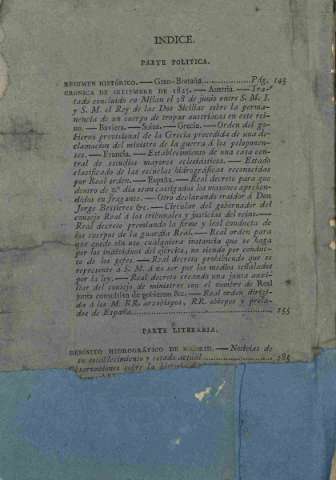 INDICE.
PARTE POLITICA.
RESUMEN HISTÓRICO. — Gran-Bretaña. Pág. 143
CRONICA DE SETIEMBRE DE 1825. — Austria. — Tra-
tado concluido en Milan el 28 de junio entre S. M. I.
y S. M. el Rey de las Dos Sicilias sobre la perma-
nencia de un cuerpo de tropas austriacas en este rei-
no. — Baviera. — Suiza. — Grecia. — Orden del go-
bierno provisional de la Grecia precedida de una de-
clamacion del ministro de la guerra á los peloponen-
ses. — Francia. — Establecimiento de una casa cen-
tral de estudios mayores eclesiásticos. — Estado
clasificado de las escuelas hidrográficas reconocidas
por Real orden. — España. — Real decreto para que
dentro de 2.º dia sean castigados los masones aprehen-
didos en fragante. — Otro declarando traidor á Don
Jorge Bessieres &c. — Circular del gobernador del
consejo Real á los tribunales y justicias del reino. —
Real decreto premiando la firme y leal conducta de
los cuerpos de la guardia Real. — Real orden para
que quede sin uso cualquiera instancia que se haga
por los individuos del ejército, no siendo por conduc-
to de los gefes. — Real decreto prohibiendo que se
represente á S. M. á no ser por los medios señalados
por la ley. — Real decreto creando una junta auxi-
liar del consejo de ministros con el nombre de Real
junta consultiva de gobierno &c. — Real orden dirigi-
da á los M. RR. arzobispos, RR. obispos y prela-
dos de España. 155
PARTE LITERARIA.
DEPÓSITO HIDROGRÁFICO DE MADRID. — Noticias de
su establecimiento y estado actual. 185
Observaciones sobre la historia